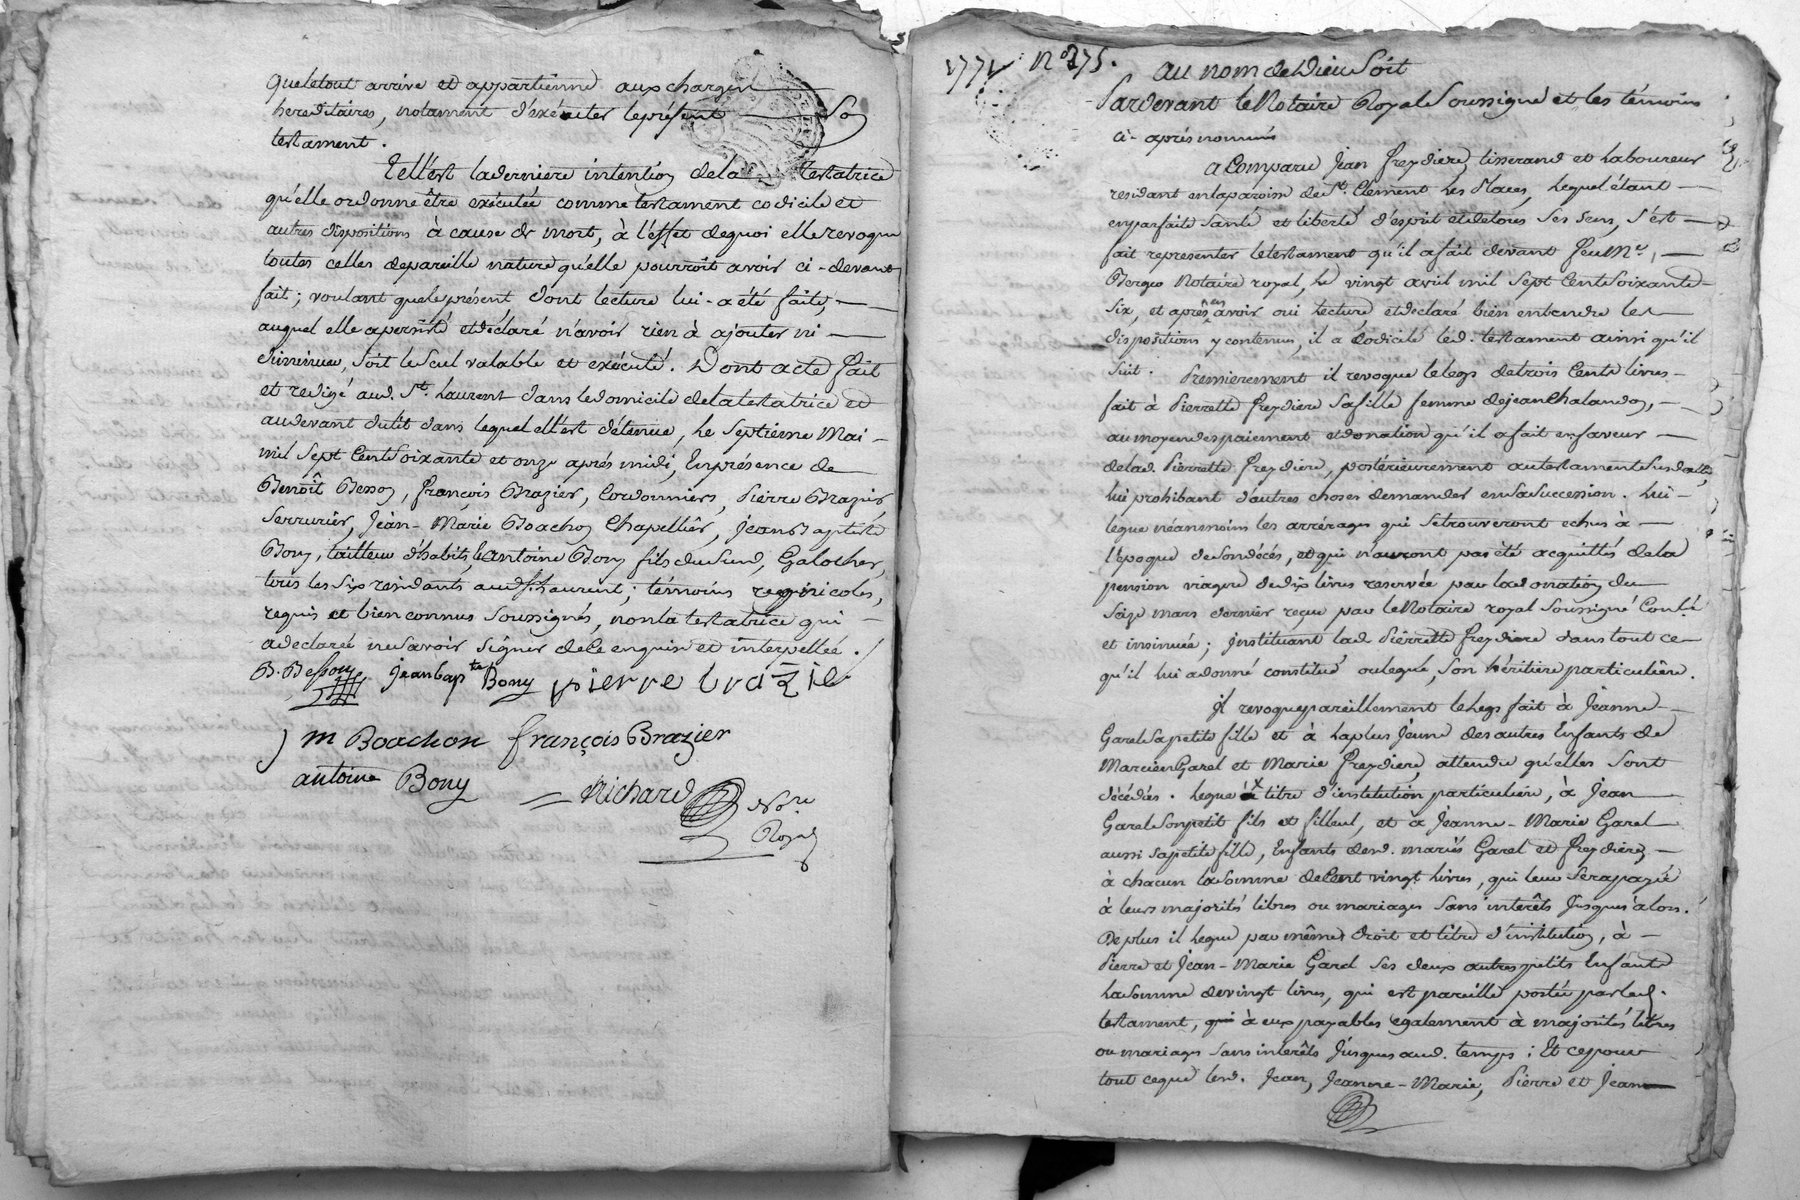 que le tout arrive et appartienne aux charges
hereditaires, notament d'exécuter le présent
testament.
Tell'est la derniere intention de la testatrice
qu'elle ordonne être exécutée comme testament codicile et
autres dispositions à cause de mort, à l'effet de quoi elle revoque
toutes celles de pareille nature qu'elle pourroit avoir ci-devant
fait; voulant que le présent dont lecture lui-a été faite,
auquel elle a persisté et déclaré n'avoir rien à ajouter ni
diminuer, soit le seul valable et exécuté. Dont acte fait
et redigé aud. St. Laurent dans le domicile de la testatrice et
au devant du lit dans lequel ell'est détenue, le septieme Mai
mil sept cent soixante et onze aprés midi, En présence de
Benoît Besson, françois Brazier, Cordonniers, Pierre Brazier
Serrurier, Jean-Marie Boachon Chapellier, Jean Baptiste
Bony, tailleur d'habits, & antoine Bony fils du sud, Galocher,
tous les six residants aud. St. Laurent; témoins regnicoles,
requis et bien connus soussignés, non la testatrice qui
a declaré ne savoir signer de ce enquise et interpellée.
B. Besson jean bapte Bony pierre brazie
J m Boachon françois Brazier
antoine Bony Richard Nore
Royal
1771 No 275.
au nom de Dieu Soit
Pardevant le Notaire Royal Soussigné et les témoins
ci-aprés nommés
a Comparu Jean freydiere, tisserand et Laboureur
residant en la paroisse de St. Clement les Places, lequel étant
en parfaite Santé et liberté d'esprit et de tous ses sens, s'est
fait representer le testament qu'il a fait devant feu Me.
Berger Notaire royal, le vingt avril mil sept Cent Soixante
Six, et aprés en avoir oui lecture et déclaré bien entendre les
dispositions y contenues, il a codicilé led. testament ainsi qu'il
suit. Premierement il revoque le legs de trois Cents livres
fait à Pierrette freydiere sa fille femme de jean Chalandon,
au moyen des paiement et donation qu'il a fait en faveur
de lad. Pierrette freydiere, postérieurement au testament susdatté,
lui prohibant d'autres choses demander en sa succession. Lui
legue néanmoins les arrérages qui se trouveront echus à
l'époque de son décés, et qui n'auront pas été acquittés de la
pension viagere de dix livres reservée par la donation du
Seize mars dernier reçue par le Notaire royal soussigné Conlé
et insinuée; instituant lad Pierrette freydiere dans tout ce
qu'il lui a donné constitué ou legué, son héritiere particuliere.
Il revoque pareillement le legs fait à Jeanne
Garel sa petite fille et à la plus Jeune des autres Enfants de
Marcien Garel et Marie freydiere, attendu qu'elles sont
décédées. Legue à titre d'institution particuliere, à Jean
Garel son petit fils et filleul, et à Jeanne-Marie Garel
aussi sa petite fille, Enfants desd. mariés Garel et freydiere,
à chacun la somme de Cent vingt livres, qui leur sera payée
à leurs majorités libres ou mariages sans interêts Jusques'alors.
De plus il legue par même droit et titre d'institution, à
Pierre et Jean-Marie Garel ses deux autres petits Enfants
la somme de vingt livres, qui est pareille portée par led.
testament, à eux payables également à majorités libres
ou mariages sans interêts Jusques aud. temps; Et ce pour
tout ce que lesd. Jean, Jeanne-Marie, Pierre et Jean